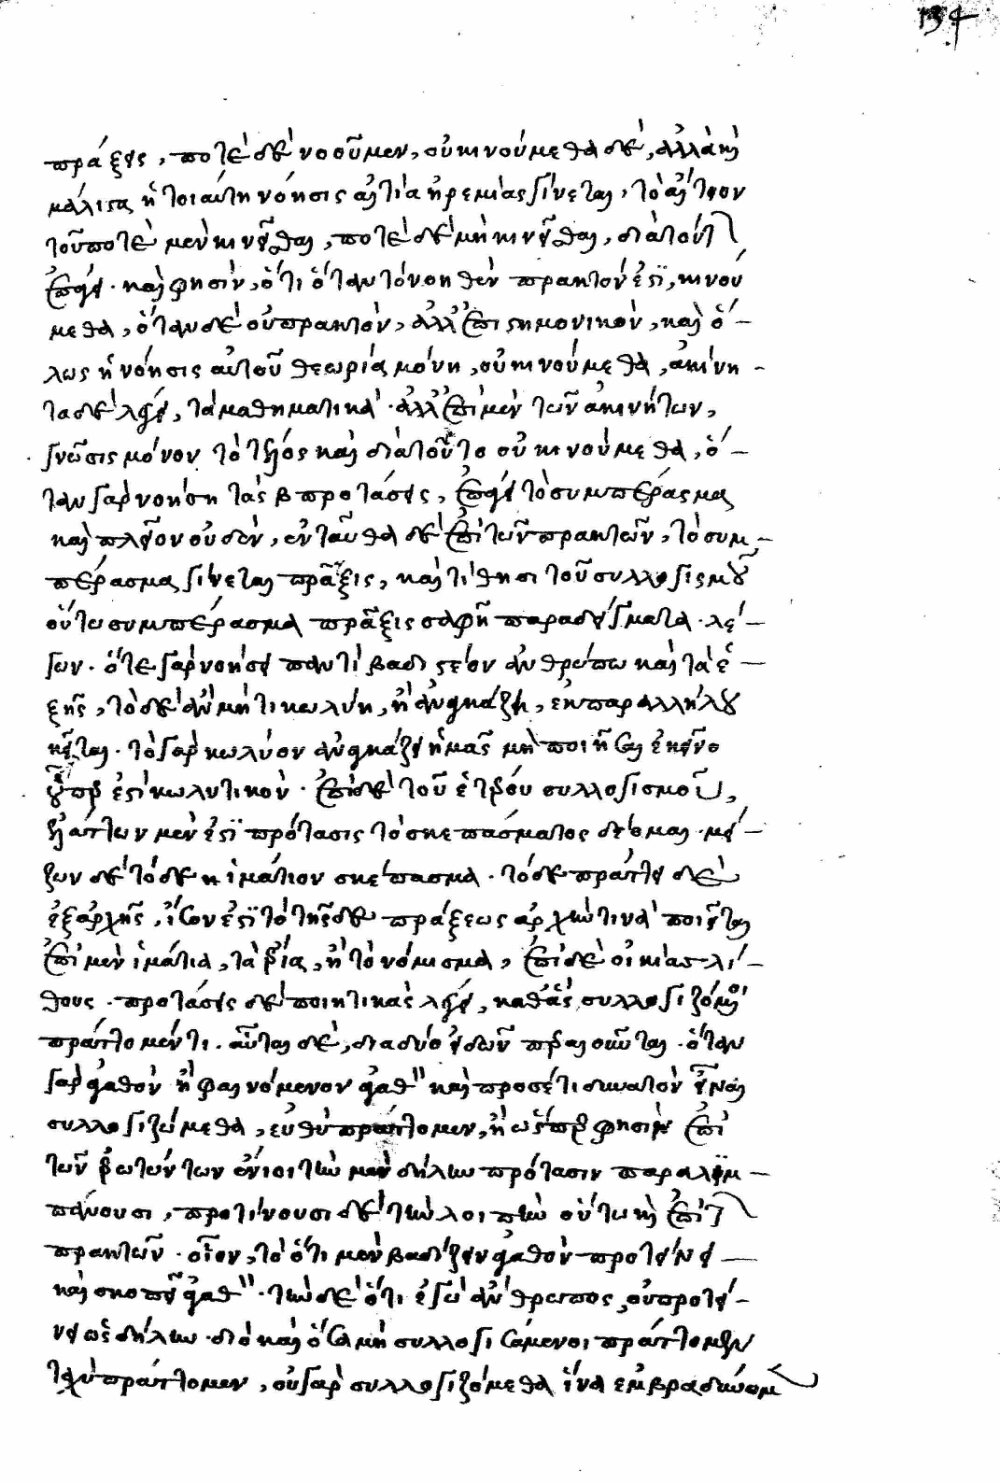 134
πράξεις, ποτὲ δὲ νοοῦμεν, οὐ κινούμεθα δέ, ἀλλὰ καὶ
μάλιστα ἡ τοιαύτη νόησις αἰτία ἠρεμίας γίνεται, τὸ αἴτιον
τοῦ ποτὲ μὲν κινεῖσθαι, ποτὲ δὲ μὴ κινεῖσθαι, διὰ τούτ
ἐπάγει. καὶ φησὶν, ὅτι ὅταν τὸ νοηθὲν πρακτόν ἐστι, κινού
μεθα, ὅταν δὲ οὐ πρακτὸν, ἀλλ' ἐπιστημονικὸν, καὶ ὅ-
λως ἡ νόησις αὐτοῦ θεωρία μόνη, οὐ κινούμεθα, ἀκίνη-
τα δὲ λέγει, τὰ μαθηματικά. ἀλλ' ἐπὶ μὲν τῶν ἀκινήτων,
γνῶσις μόνον τὸ τέλος καὶ διὰ τοῦτο οὐ κινούμεθα, ὅ-
ταν γὰρ νοήσῃ τὰς β προτάσεις, ἐπάγει τὸ συμπέρασμα
καὶ πλεῖον οὐδὲν, ἐνταῦθα δὲ ἐπὶ τῶν πρακτῶν, τὸ συμ-
πέρασμα γίνεται πρᾶξις, καὶ τίθησι τοῦ συλλογισμοῦ
οὗ τὸ συμπέρασμα πρᾶξις σαφῆ παραδείγματα. λέ-
γων. ὅτε γὰρ νοήσει παντὶ βαδιστέον ἀνθρώπω καὶ τὰ ἑ-
ξῆς, τὸ δὲ ἂν μή τι κωλύη, ἢ ἀναγκάζη, ἐκ παραλλήλου
κεῖται. τὸ γὰρ κωλύον ἀναγκάζει ἡμᾶς μὴ ποιῆσαι ἐκεῖνο
οὗπερ ἐστὶ κωλυτικόν. ἐπὶ δὲ τοῦ ἑτέρου συλλογισμοῦ,
ἡ ἐλάττων μὲν ἐστὶ πρότασις τὸ σκεπάσματος δέομαι. μεί-
ζων δὲ τὸ δὲ ἱμάτιον σκέπασμα. τὸ δὲ πράττει δὲ
ἐξαρχῆς, ἴσον ἐστὶ τὸ τῆς δὲ πράξεως ἀρχὴν τινὰ ποιεῖται
ἐπὶ μὲν ἱμάτια, τὰ ἔρια, ἢ τὸ νόμισμα, ἐπὶ δὲ οἰκίας λί-
θους. προτάσεις δὲ ποιητικὰς λέγει, καθ' ἃς συλλογιζόμενοι
πράττομέν τι. αὗται δὲ, διὰ δύο εἰδῶν περαιοῦνται. ὅταν
γὰρ ἀγαθὸν ἢ φαινόμενον ἀγαθὸν καὶ προσέτι δυνατὸν εἶναι
συλλογιζώμεθα, εὐθὺ πράττομεν, ἢ ὥσπερ φησὶν ἐπὶ
τῶν ἐρωτώντων ἔνιοι τὴν μὲν δήλην πρότασιν παραλιμ-
πάνουσι, προτείνουσι δὲ τὴν λοιπὴν οὕτω καὶ ἐπὶ τ
πρακτῶν. οἷον, τὸ ὅτι μὲν βαδίζειν ἀγαθὸν προτείνει
καὶ σκοπεῖ ἀγαθόν. τὴν δὲ ὅτι ἐγὼ ἄνθρωπος, οὐ προτεί-
νει ὡς δήλην. διὸ καὶ ὅσα μὴ συλλογισάμενοι πράττομεν
ταχὺ πράττομεν, οὐ γὰρ συλλογιζόμεθα ἵνα ἐμβραδύνωμ